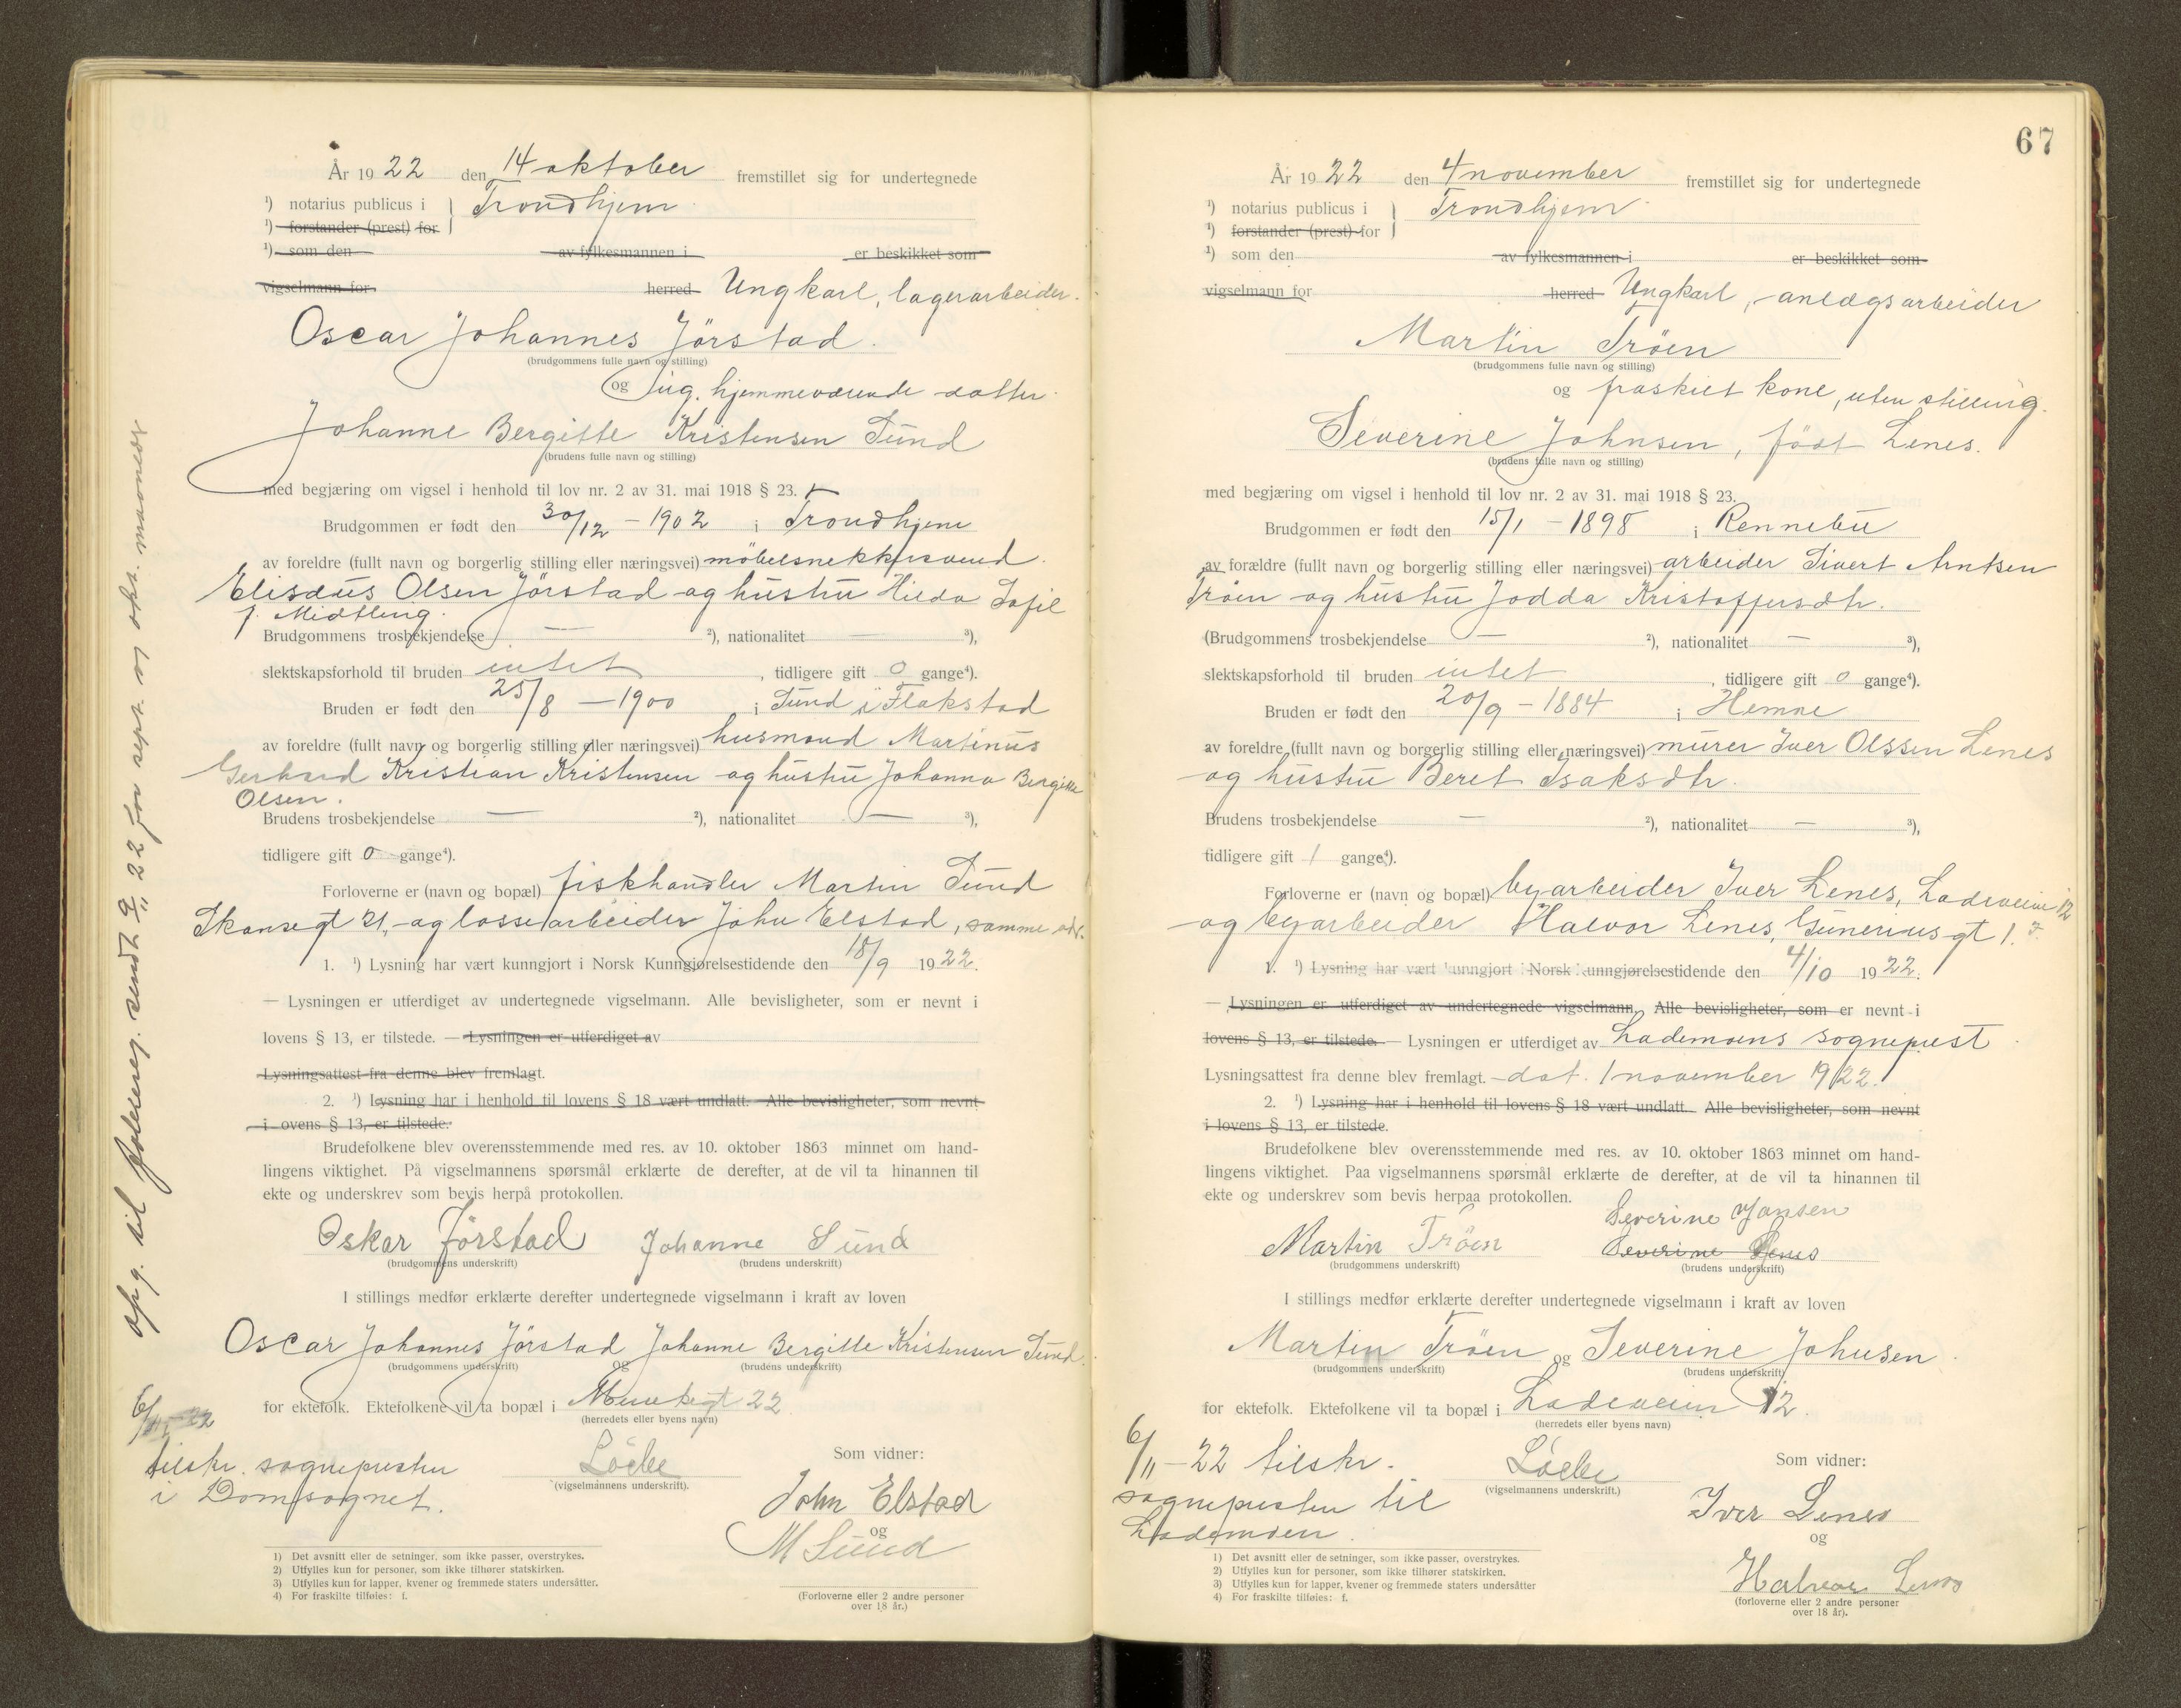 År 1922 den 14 oktober fremstillet sig for undertegnede
¹) notarius publicus i } Trondhjem
¹) forstander (prest) for
¹) som den av fylkesmannen i er beskikket som
vigselmann for herred Ungkarl, lagerarbeider.
Oscar Johannes Jörstad.
(brudgommens fulle navn og stilling)
og pig. hjemmeværende datter.
Johanne Bergitte Kristensen Sund
(brudens fulle navn og stilling)
med begjæring om vigsel i henhold til lov nr. 2 av 31. mai 1918 § 23.
Brudgommen er født den 30/12 - 1902 i Trondhjem
av foreldre (fullt navn og borgerlig stilling eller næringsvei) möbelsnekkersvend.
Elisæus Olsen Jörstad og hustru Hilda Sofie
f. Midtling.
Brudgommens trosbekjendelse — ²), nationalitet — ³),
slektskapsforhold til bruden intet, tidligere gift 0 gange⁴).
Bruden er født den 25/8 - 1900 i Sund i Flakstad
av foreldre (fullt navn og borgerlig stilling eller næringsvei) husmand Martinus
Gerhard Kristian Kristensen og hustru Johanna Bergitte
Olsen.
Brudens trosbekjendelse — ²), nationalitet — ³),
tidligere gift 0 gange⁴).
Forloverne er (navn og bopæl) fiskhandler Martin Sund
Skansegt 21, og lossearbeider John Elstad, samme adr.
1. ¹) Lysning har vært kunngjort i Norsk Kunngjørelsestidende den 18/9 1922.
— Lysningen er utferdiget av undertegnede vigselmann. Alle bevisligheter, som er nevnt i
lovens § 13, er tilstede. — Lysningen er utferdiget av
Lysningsattest fra denne blev fremlagt.
2. ¹) Lysning har i henhold til lovens § 18 vært undlatt. Alle bevisligheter, som nevnt
i lovens § 13, er tilstede.
Brudefolkene blev overensstemmende med res. av 10. oktober 1863 minnet om hand-
lingens viktighet. På vigselmannens spørsmål erklærte de derefter, at de vil ta hinannen til
ekte og underskrev som bevis herpå protokollen.
Oskar Jörstad Johanne Sund
(brudgommens underskrift) (brudens underskrift)
I stillings medfør erklærte derefter undertegnede vigselmann i kraft av loven
Oscar Johannes Jörstad og Johanne Bergitte Kristensen Sund.
(brudgommens underskrift) (brudens underskrift)
for ektefolk. Ektefolkene vil ta bopæl i Munkegt 22
(herredets eller byens navn)
6/11-22
tilskr. sognepresten
i Domsognet.
Löche
(vigselmannens underskrift).
Som vidner:
John Elstad
og
M Sund
(Forloverne eller 2 andre personer
over 18 år.)
1) Det avsnitt eller de setninger, som ikke passer, overstrykes.
2) Utfylles kun for personer, som ikke tilhører statskirken.
3) Utfylles kun for lapper, kvener og fremmede staters undersåtter.
4) For fraskilte tilføies: f.
opg. til folkereg. sendt 9/11 22 for sept. og okt. maaneder
67
År 1922 den 4 november fremstillet sig for undertegnede
¹) notarius publicus i } Trondhjem
¹) forstander (prest) for
¹) som den av fylkesmannen i er beskikket som
vigselmann for herred Ungkarl, anlægsarbeider
Martin Tröen
(brudgommens fulle navn og stilling)
og fraskilt kone, uten stilling.
Severine Johnsen, födt Lenes.
(brudens fulle navn og stilling)
med begjæring om vigsel i henhold til lov nr. 2 av 31. mai 1918 § 23.
Brudgommen er født den 15/1 - 1898 i Rennebu
av forældre (fullt navn og borgerlig stilling eller næringsvei) arbeider Sivert Arntsen
Tröen og hustru Jodda Kristoffersdtr.
(Brudgommens trosbekjendelse — ²), nationalitet — ³),
slektskapsforhold til bruden intet, tidligere gift 0 gange⁴).
Bruden er født den 20/9 - 1884 i Hemne
av foreldre (fullt navn og borgerlig stilling eller næringsvei) murer Iver Olssen Lenes
og hustru Beret Isaksdtr.
Brudens trosbekjendelse — ²), nationalitet — ³),
tidligere gift 1 gange⁴).
Forloverne er (navn og bopæl) byarbeider Iver Lenes, Ladeveien 12
og byarbeider Halvor Lenes, Gunerius gt 1.
1. ¹) Lysning har vært kunngjort i Norsk Kunngjørelsestidende den 4/10 1922.
— Lysningen er utferdiget av undertegnede vigselmann. Alle bevisligheter, som er nevnt i
lovens § 13, er tilstede. — Lysningen er utferdiget av Lademoens sogneprest
Lysningsattest fra denne blev fremlagt. dat. 1 november 1922.
2. ¹) Lysning har i henhold til lovens § 18 vært undlatt. Alle bevisligheter, som nevnt
i lovens § 13, er tilstede.
Brudefolkene blev overensstemmende med res. av 10. oktober 1863 minnet om hand-
lingens viktighet. Paa vigselmannens spørsmål erklærte de derefter, at de vil ta hinannen til
ekte og underskrev som bevis herpaa protokollen.
Severine Jonsen
Martin Tröen Severine Lenes
(brudgommens underskrift) (brudens underskrift)
I stillings medfør erklærte derefter undertegnede vigselmann i kraft av loven
Martin Tröen og Severine Johnsen
(brudgommens underskrift) (brudens underskrift)
for ektefolk. Ektefolkene vil ta bopæl i Ladeveien 12.
(herredets eller byens navn)
6/11-22 tilskr.
sognepresten til
Lademoen.
Löche
(vigselmannens underskrift.)
Som vidner:
Iver Lenes
og
Halvor Lenes
(forloverne eller 2 andre personer
over 18 år).
1) Det avsnitt eller de setninger, som ikke passer, overstrykes.
2) Utfylles kun for personer, som ikke tilhører statskirken.
3) Utfylles kun for lapper, kvener og fremmede staters undersåtter
4) For fraskilte tilføies: f.